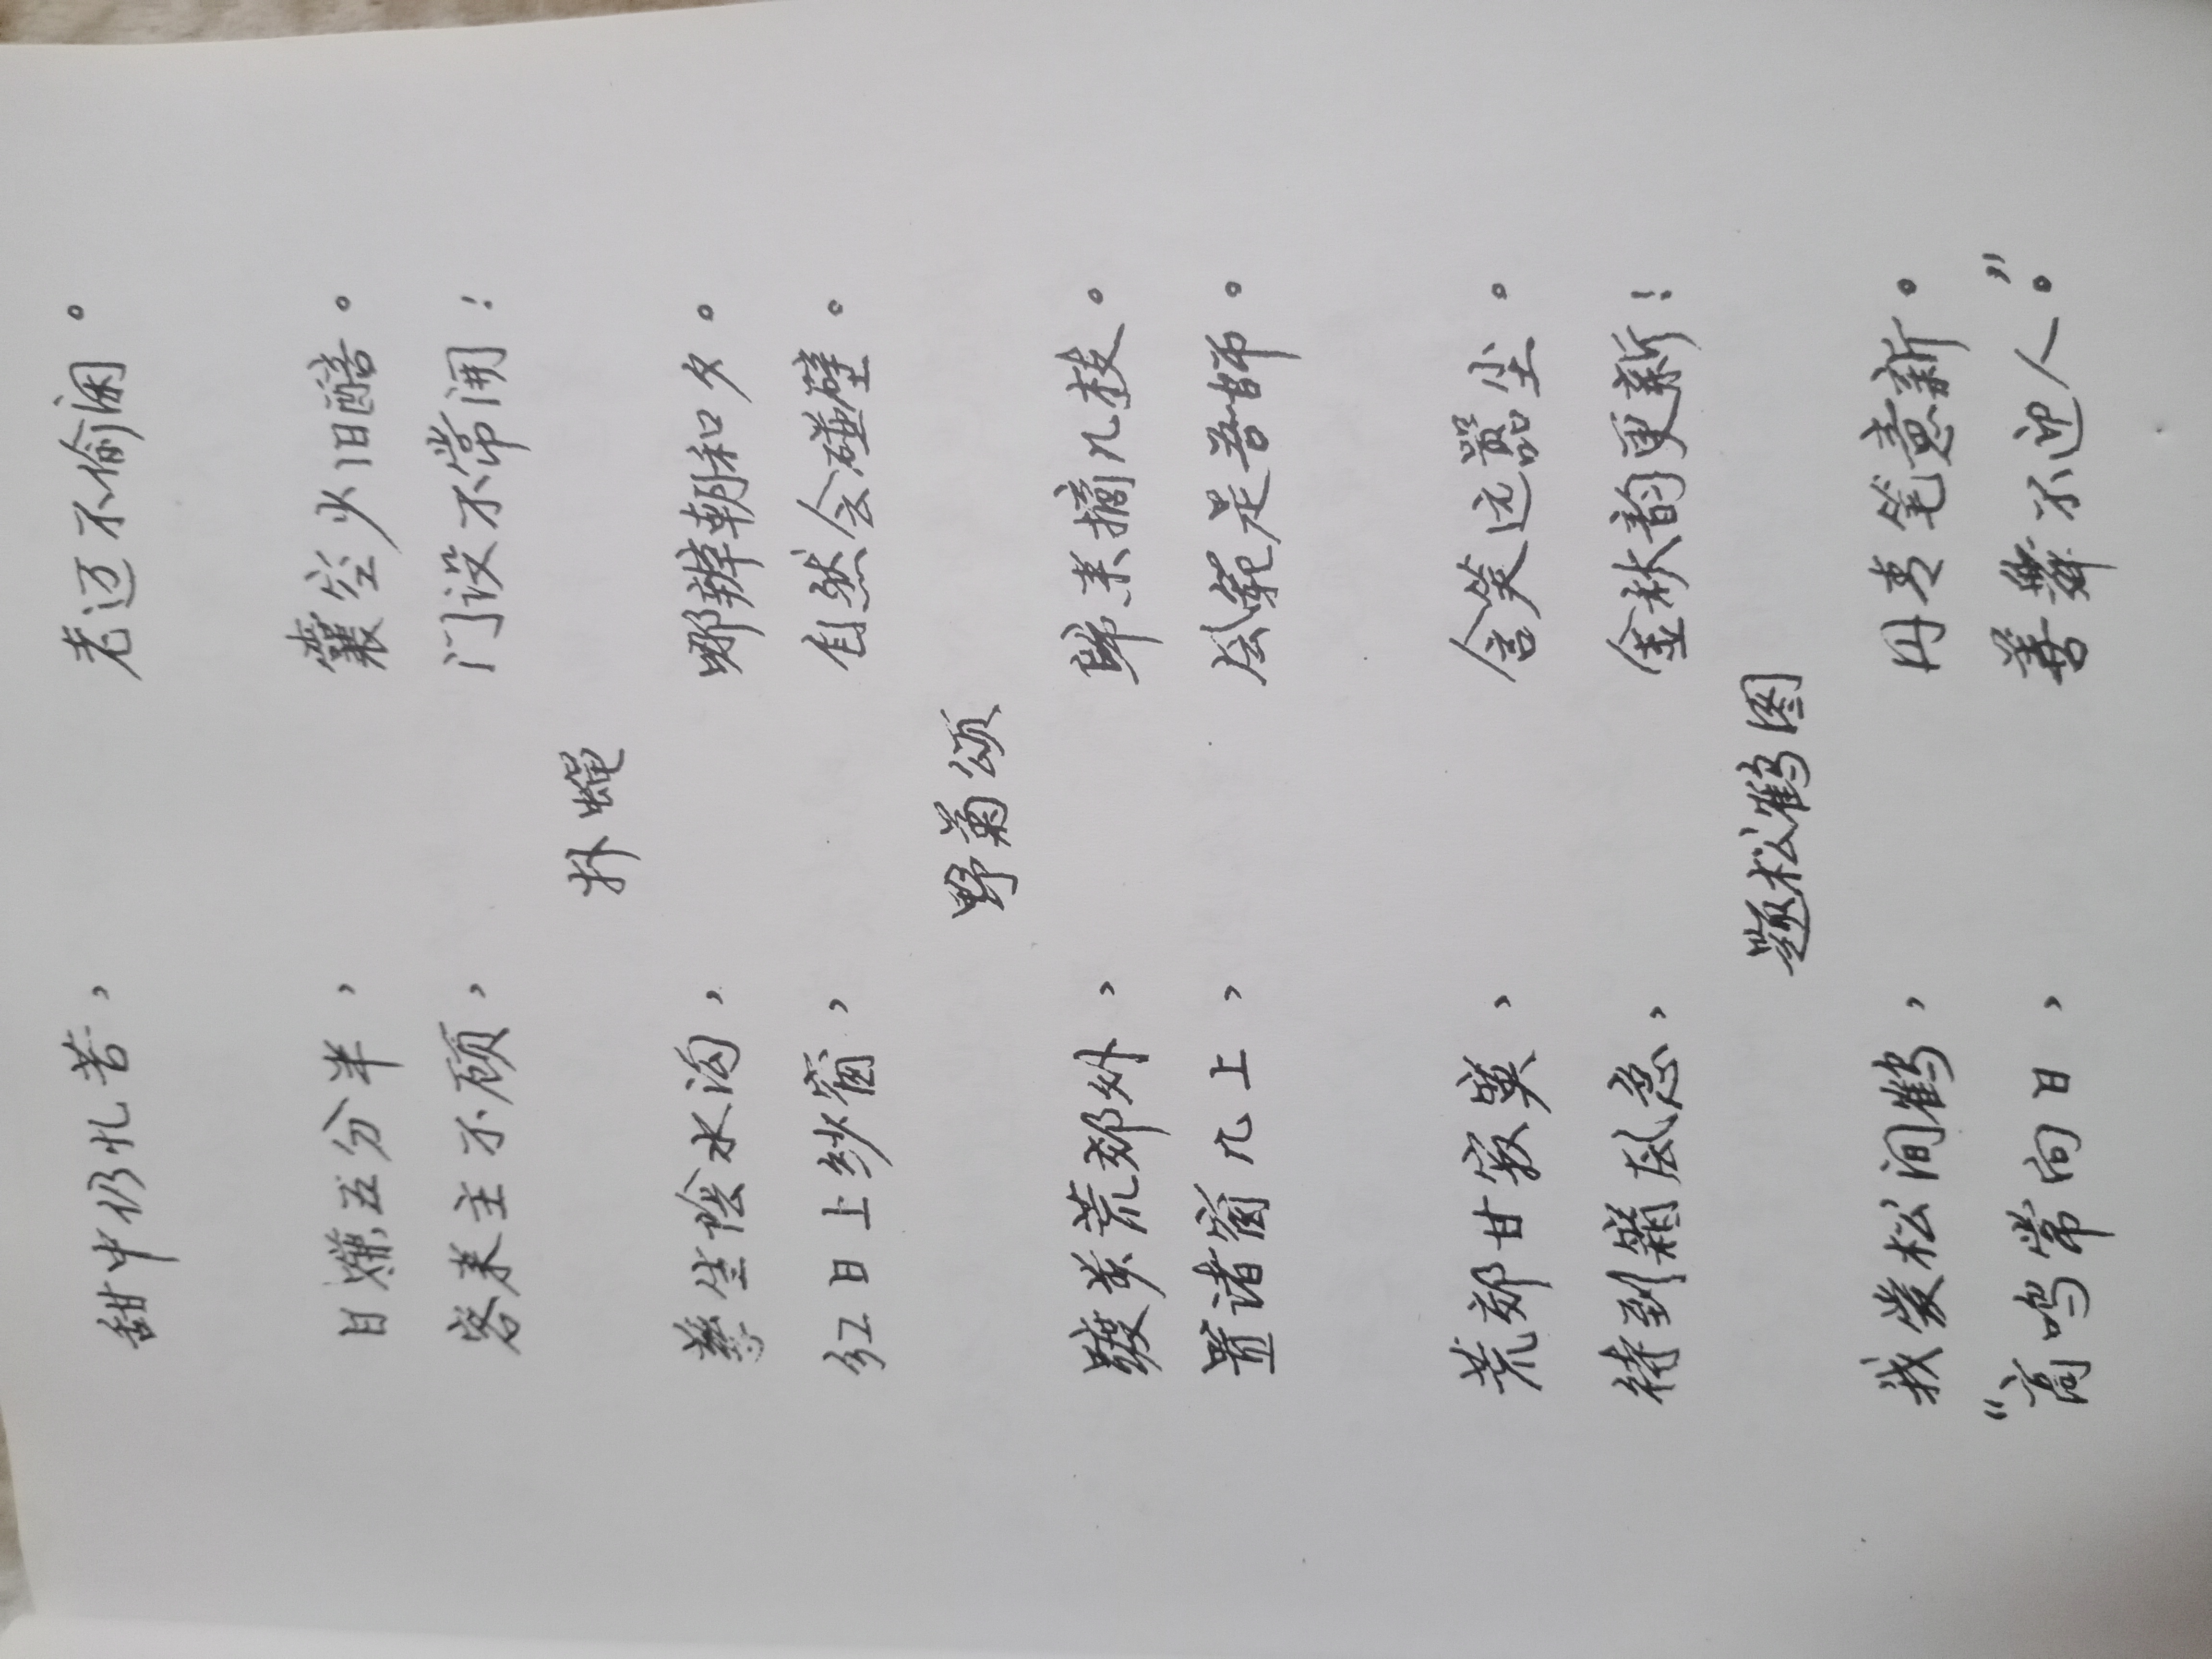 甜中仍忆苦，老迈不偷闲。
日赚五分半，囊空少旧醅。
客来主不顾，门设不常开！
扑蝇
孳生阴水沟，哪辨朝和夕。
红日上纱窗，自然会碰壁。
野菊颂
踱步荒郊外，归来摘几枝。
置诸窗几上，风范是吾师。
荒郊甘寂寞，含笑远嚣尘。
待到籬风急，金秋韵更新！
题松鹤图
我爱松间鹤，丹青笔意新。
“高鸣常向日，善舞不迎人。”